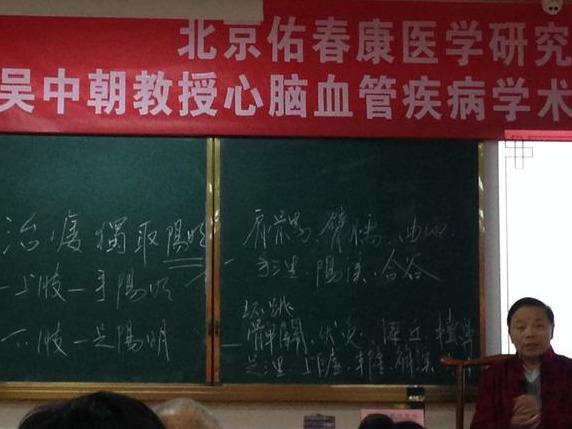 北京佑春康医学研究
吴中朝教授心脑血管疾病学术
治痿獨取陽明
上肢一手陽明
下肢一足陽明
肩髃 臂臑 曲池
手三里 陽溪 合谷
环跳
髀關 伏兔 梁丘
足三里 上巨虚 解溪